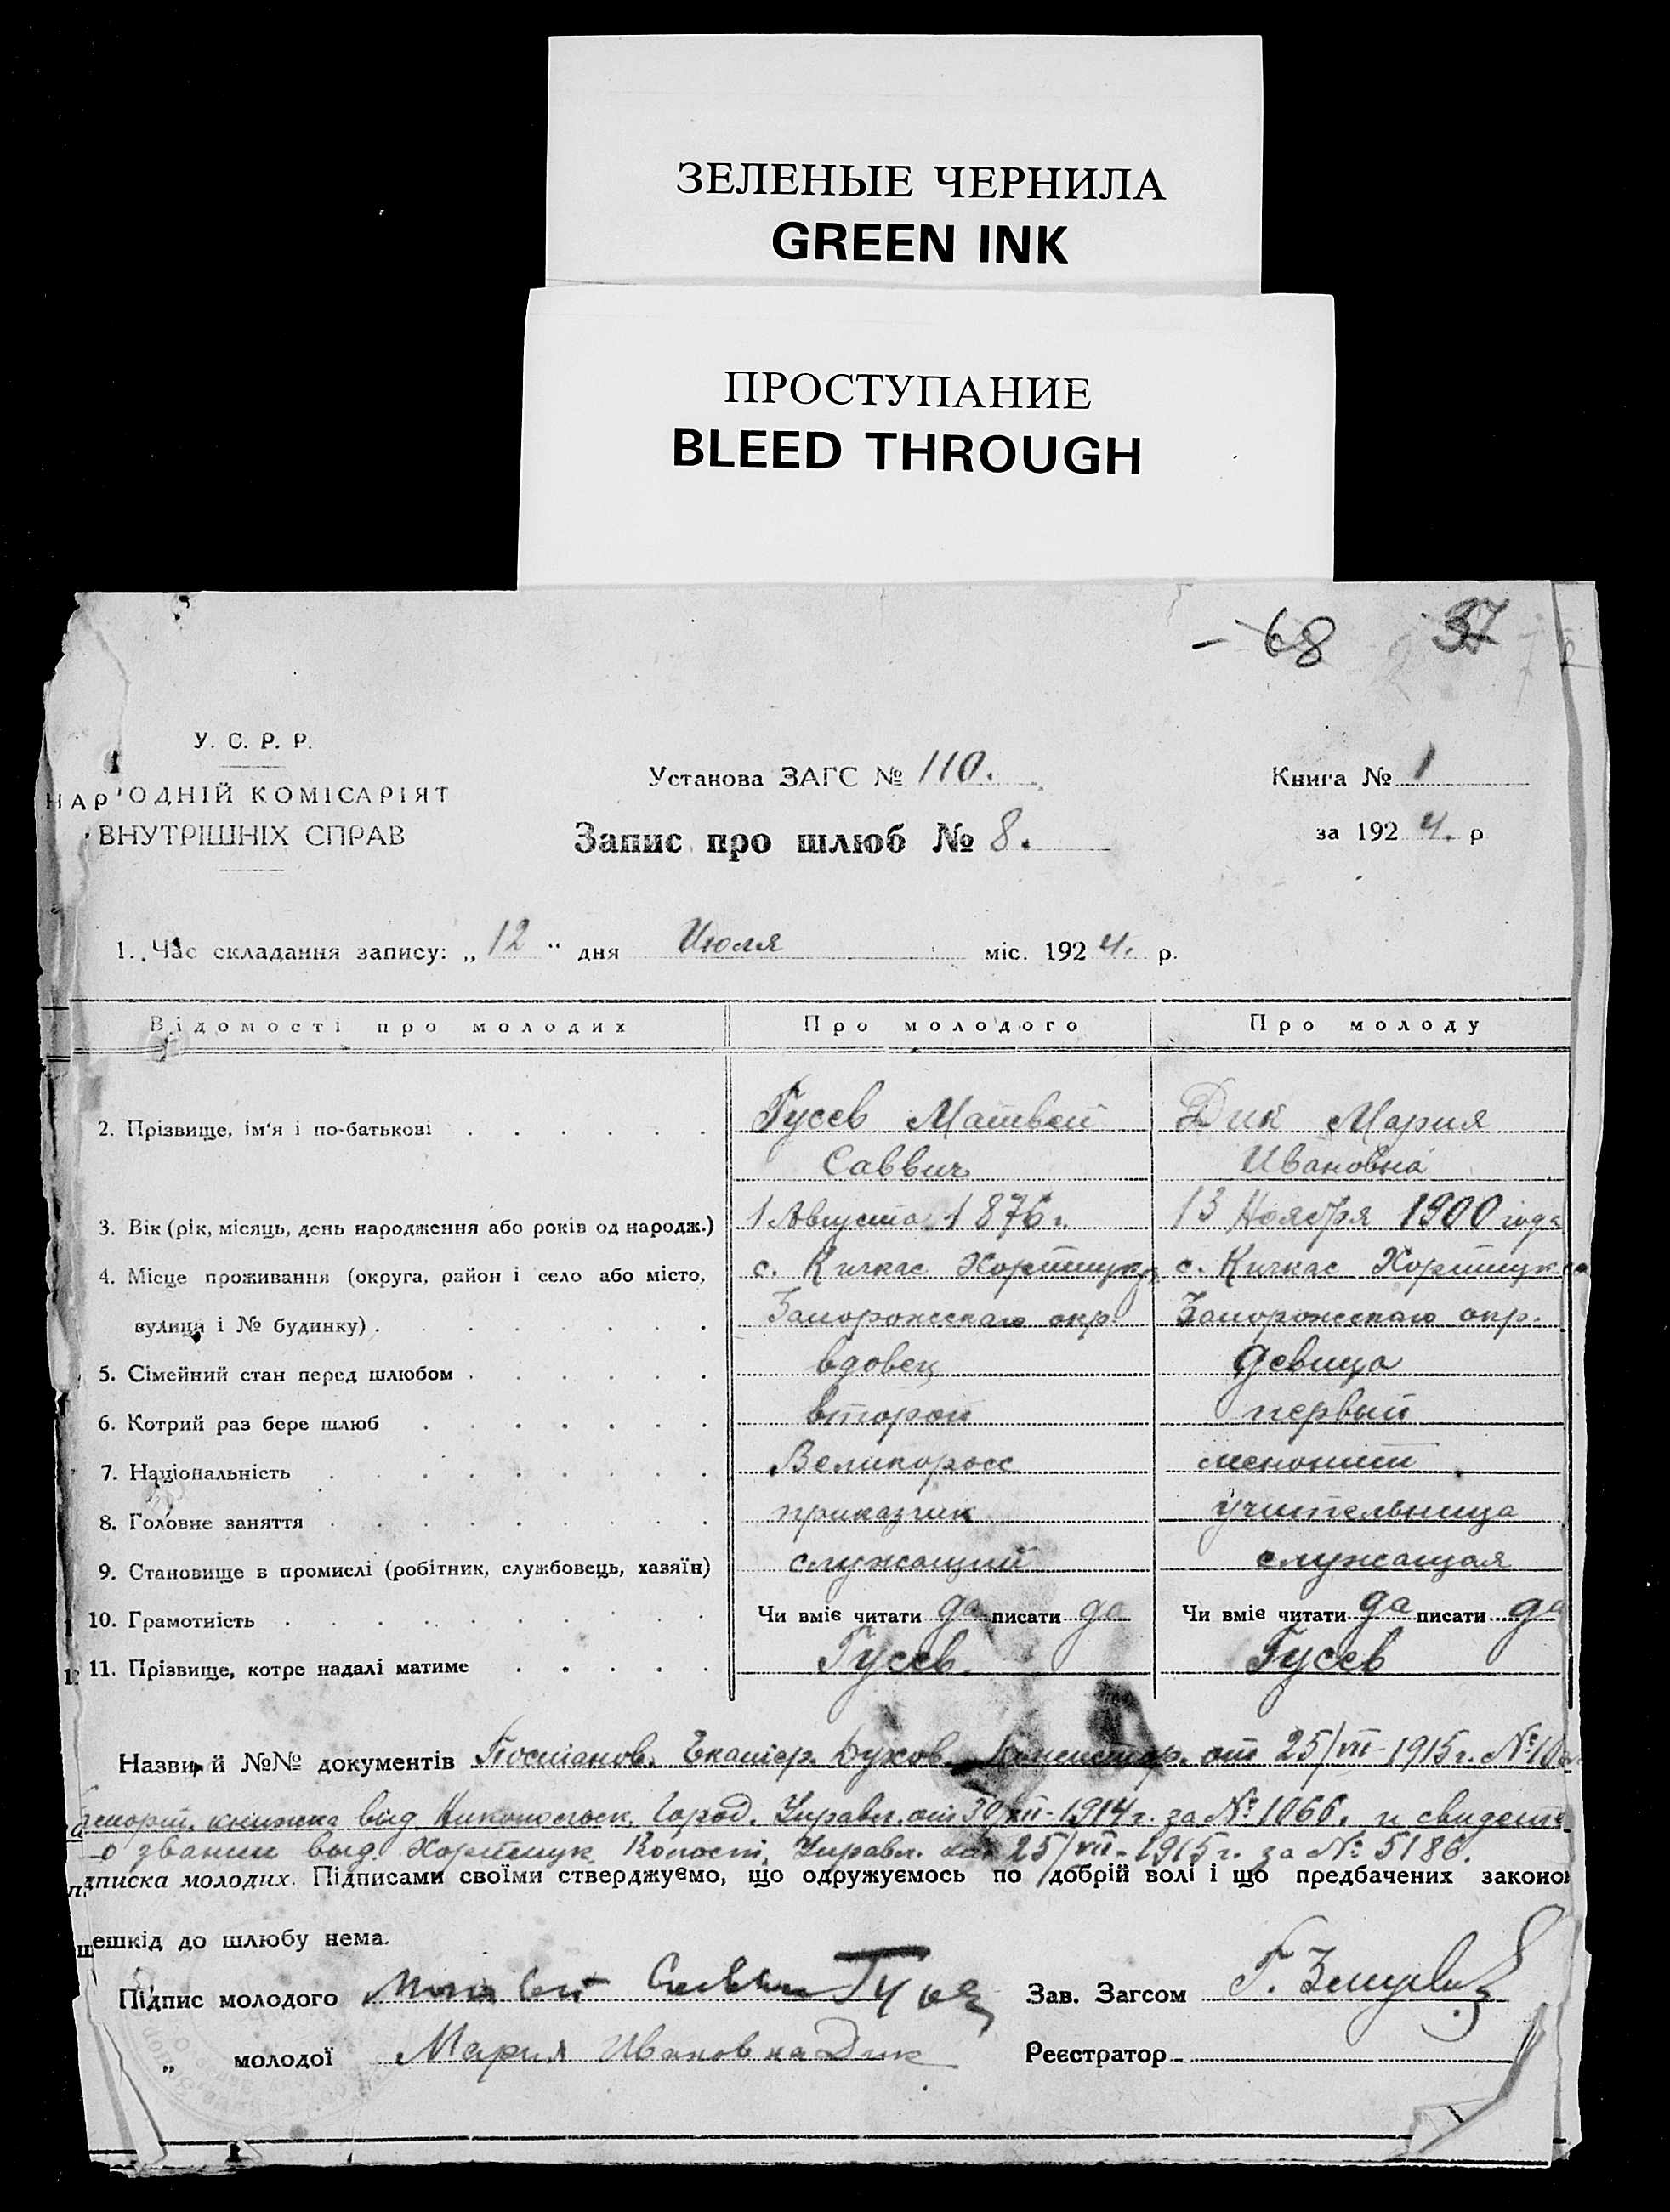 ЗЕЛЕНЫЕ ЧЕРНИЛА
GREEN INK
ПРОСТУПАНИЕ
BLEED THROUGH
- 68 37
У. С. Р. Р.
НАРОДНІЙ КОМІСАРІЯТ
ВНУТРІШНІХ СПРАВ
Установа ЗАГС № 110.
Запис про шлюб № 8.
Книга № 1
за 1924. р
1. Час складання запису: „ 12 “ дня Июля міс. 1924. р.
Відомості про молодих Про молодого Про молоду
2. Прізвище, ім'я і по-батькові Гусев Матвей Дик Мария
Саввич Ивановна
3. Вік (рік, місяць, день народження або років од народж.) 1 Августа 1876 г. 13 Ноября 1900 года
4. Місце проживання (округа, район і село або місто, с. Кичкас Хортицк. р. с. Кичкас Хортицк
вулиця і № будинку) Запорожскаго окр. Запорожскаго окр.
5. Сімейний стан перед шлюбом вдовец девица
6. Котрий раз бере шлюб второй первый
7. Національність Великоросс менонит
8. Головне заняття приказчик учительница
9. Становище в промислі (робітник, службовець, хазяїн) служащий служащая
10. Грамотність Чи вміє читати да писати да Чи вміє читати да писати да
11. Прізвище, котре надалі матиме Гусев. Гусев
Назви й №№ документів Постанов. Екатер. Духов. Консистор. от 25/VII-1915 г. №
книжка выд. Никопольск. Город. Управл. от 30/XII-1914 г. за № 1066. и свидет
о звании выд. Хортицк. Волост. Управл. 25/VII-1915 г. за № 5186.
дписка молодих. Підписами своїми стверджуємо, що одружуємось по добрій волі і що предбачених законо
шешкід до шлюбу нема.
Підпис молодого Матвей Саввич Гусев Зав. Загсом
„ молодої Мария Ивановна Дик Реєстратор